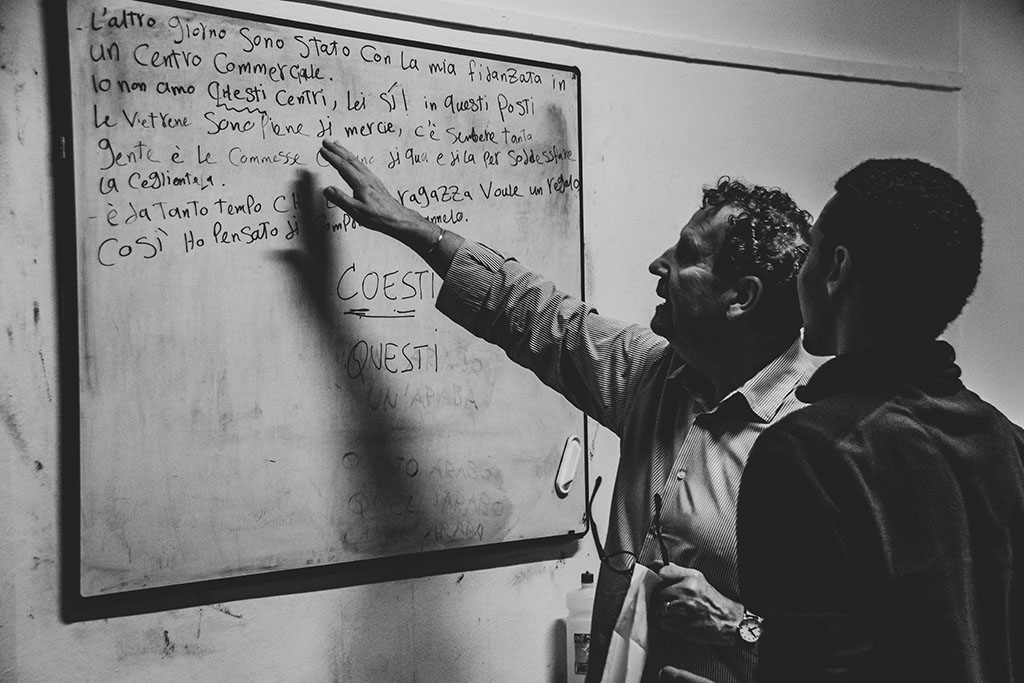 - L'altro giorno sono stato con la mia fidanzata in
un centro commerciale.
Io non amo Chesti centri, lei SÍ! in questi posti
le vietrene sono piene di mercie, c'è sembere tanta
gente è le commesse di qua e di la per soddessfare
la ceglientela.
- è da tanto tempo ragazza voule un regalo
così ho pensato di
COESTI
QUESTI
UN'ARABA
QUESTO ARABO
QUEL ARABO